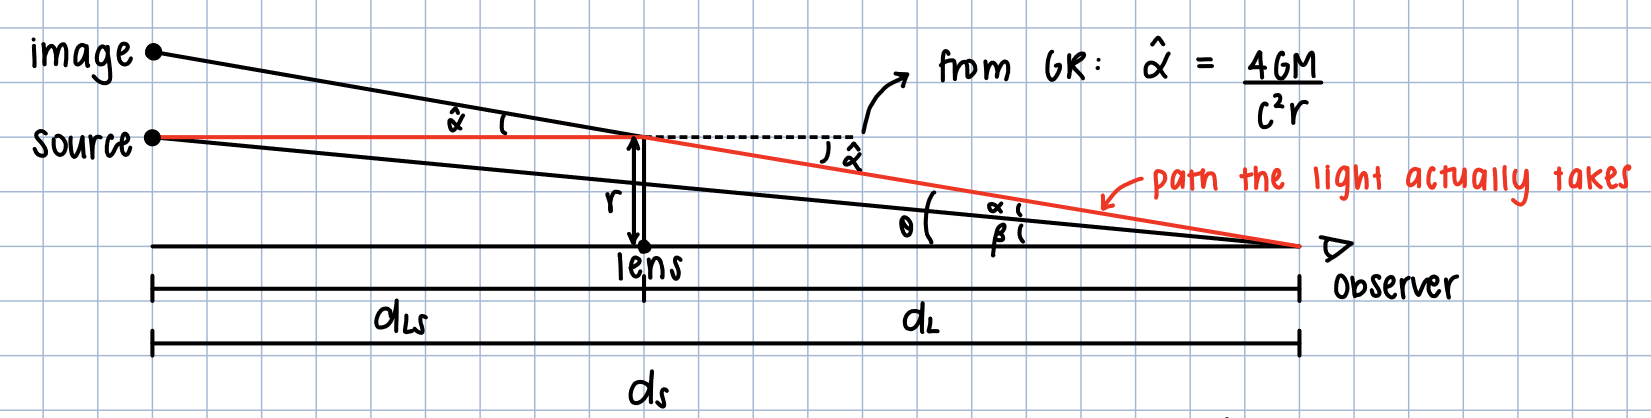 image
from GR: α̂ = 4GM / c²r
source
α̂
α̂
path the light actually takes
r
θ
α
β
lens
observer
dLS
dL
dS